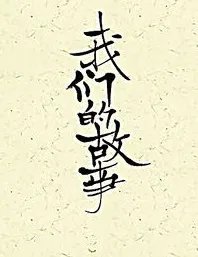 我们的故事